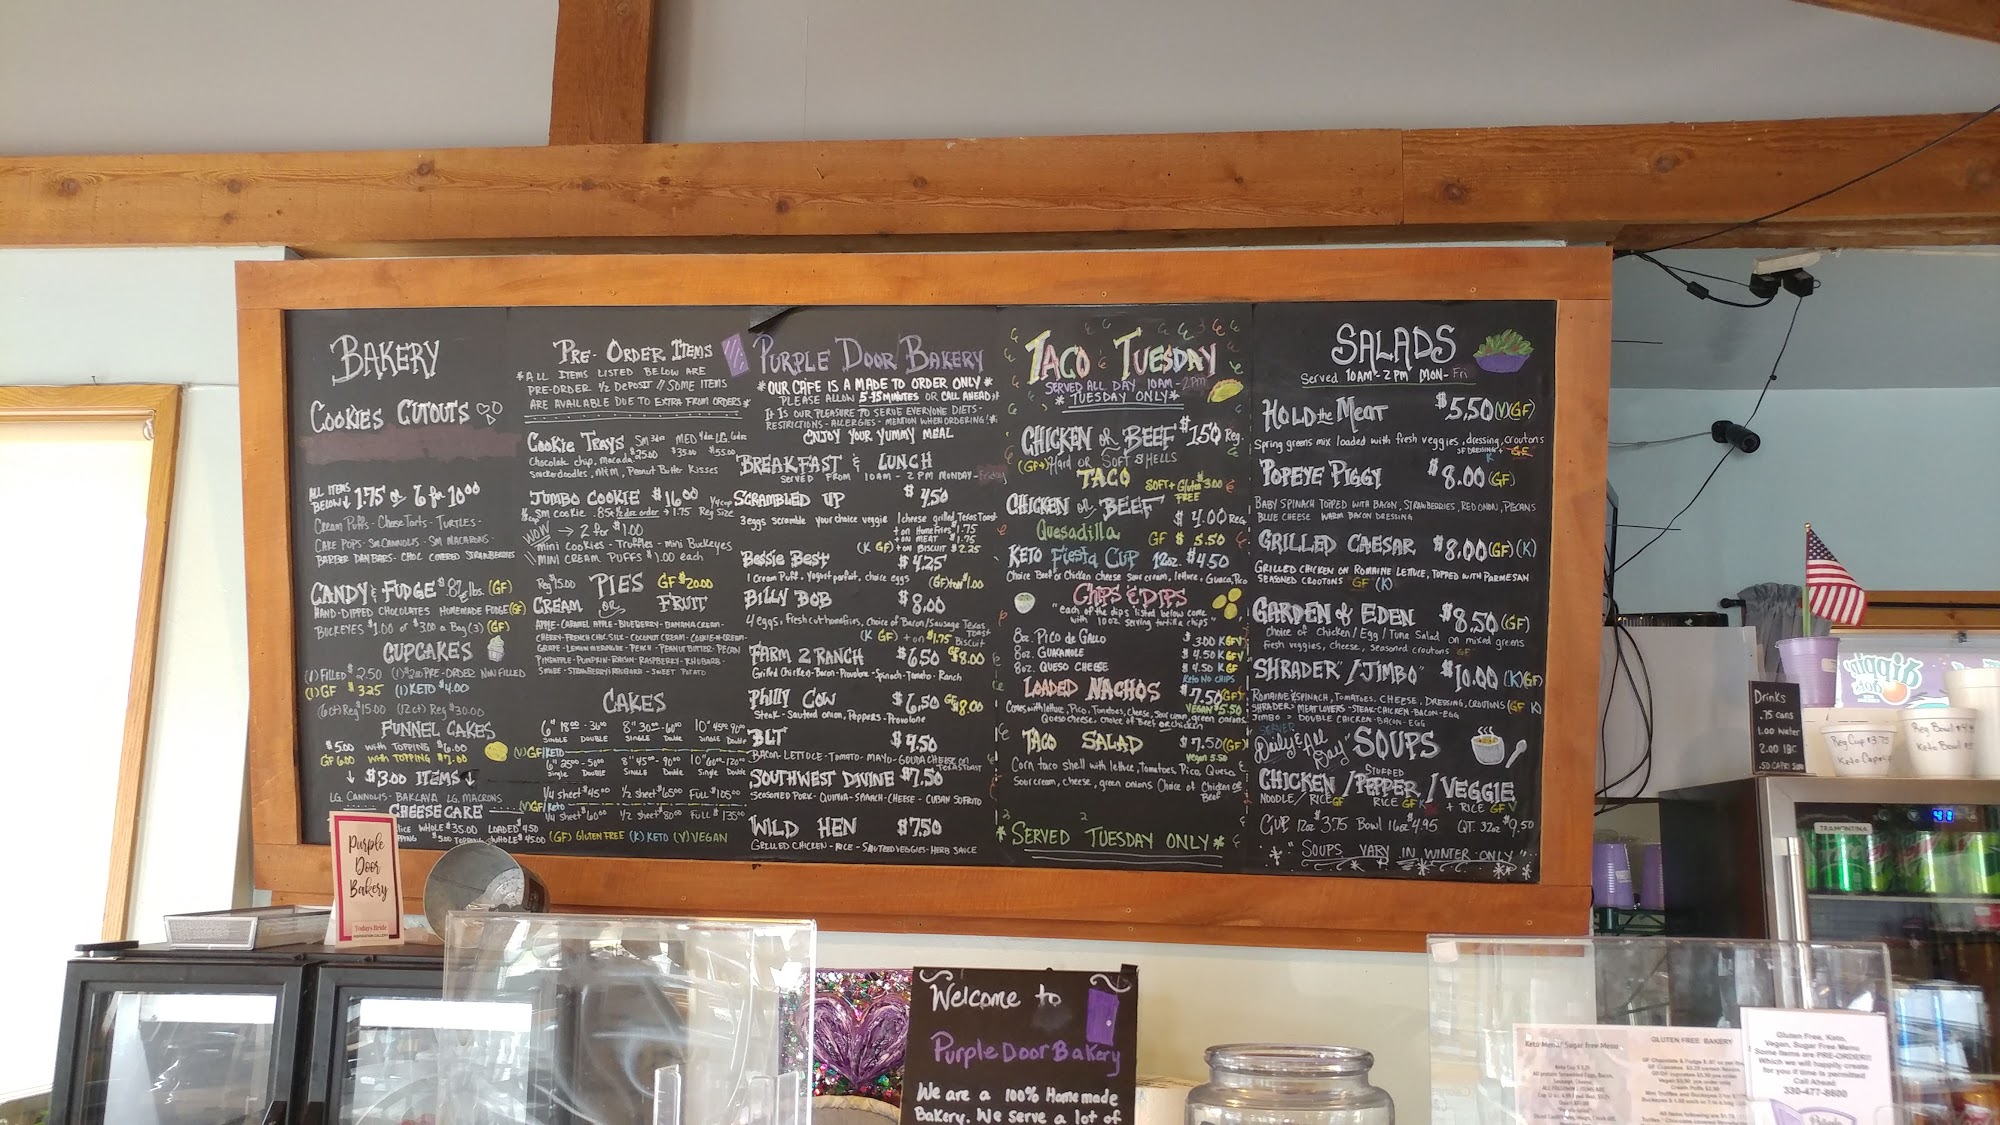 BAKERY
COOKIES CUTOUTS
ALL ITEMS
BELOW ↓ 1.75 or 6 for 10.00
CREAM PUFFS - CHEESE TARTS - TURTLES -
CAKE POPS - SM CANNOLIS - SM MACARONS -
CHOC COVERED STRAWBERRIES
CANDY & FUDGE (GF)
HAND-DIPPED CHOCOLATES HOMEMADE FUDGE (GF)
BUCKEYES $1.00 or $3.00 a Bag (3) (GF)
CUPCAKES
(1) FILLED $2.50 PRE-ORDER NON FILLED
(1) GF $3.25 (1) KETO $4.00
(6 ct) Reg $15.00 (12 ct) Reg $30.00
FUNNEL CAKES
$5.00 WITH TOPPING $6.00
GF 6.00 WITH TOPPING $7.00
↓ $3.00 ITEMS ↓
LG. CANNOLIS - BAKLAVA LG. MACRONS
CHEESECAKE
WHOLE $35.00 LOADED $4.50
PRE-ORDER ITEMS
*ALL ITEMS LISTED BELOW ARE
PRE-ORDER ½ DEPOSIT // SOME ITEMS
ARE AVAILABLE DUE TO EXTRA FROM ORDERS*
COOKIE TRAYS SM 3dz MED 4dz LG. 6dz
Chocolate chip, macada $25.00 $35.00 $55.00
Snickerdoodles, M&M, Peanut Butter Kisses
JUMBO COOKIE $16.00
sm cookie .85¢ ½ doz order → 1.75 Reg Size
WOW → 2 for $1.00
mini cookies - Truffles - mini Buckeyes
MINI CREAM PUFFS $1.00 each
Reg $15.00 PIES GF $20.00
CREAM OR FRUIT
APPLE - CARAMEL APPLE - BLUEBERRY - BANANA CREAM -
CHERRY - FRENCH CHC SILK - COCONUT CREAM - COOKIE-N-CREAM -
GRAPE - LEMON MERINGUE - PEACH - PEANUT BUTTER - PECAN
PINEAPPLE - PUMPKIN - RAISIN - RASPBERRY - RHUBARB -
STRAWBERRY RHUBARB - SWEET POTATO
CAKES
6" 18.00 - 36.00 8" 30.00 - 60.00 10" 45.00 90.00
SINGLE DOUBLE SINGLE Double Single Double
(V) GF/KETO
6" 25.00 - 50.00 8" 45.00 - 90.00 10" 60.00 - 120.00
Single DOUBLE SINGLE Double Single Double
¼ sheet $45.00 ½ sheet $65.00 FULL $105.00
(V) GF/Keto
¼ sheet $60.00 ½ sheet $80.00 FULL $135.00
(GF) GLUTEN FREE (K) KETO (V) VEGAN
PURPLE DOOR BAKERY
*OUR CAFE IS A MADE TO ORDER ONLY*
PLEASE ALLOW 5-15 MINUTES OR CALL AHEAD
IT IS OUR PLEASURE TO SERVE EVERYONE DIETS -
RESTRICTIONS - ALLERGIES - MENTION WHEN ORDERING!
ENJOY YOUR YUMMY MEAL
BREAKFAST & LUNCH
SERVED FROM 10AM - 2 PM MONDAY - Friday
SCRAMBLED UP $4.50
3 eggs scramble your choice veggie 1 cheese grilled Texas Toast
+ on Homefries $1.75
+ on MEAT $1.75
(K GF) + on BISCUIT $2.25
Bessie Best $4.25
1 Cream Puff, Yogurt parfait, choice eggs (GF) + on $1.00
BILLY BOB $8.00
4 eggs, Fresh cut homefries, Choice of Bacon/Sausage Texas Toast
(K GF) + on $1.75 Biscuit
FARM 2 RANCH $6.50 GF $8.00
Grilled Chicken - Bacon - Provolone - Spinach - Tomato - Ranch
Philly Cow $6.50 GF $8.00
Steak - Sauteed onion, Peppers - Provolone
BLT $4.50
BACON - LETTUCE - TOMATO - MAYO - GOUDA CHEESE ON TEXAS TOAST
SOUTHWEST DIVINE $7.50
SEASONED PORK - QUINOA - SPINACH - CHEESE - CUBAN SOFRITO
WILD HEN $7.50
GRILLED CHICKEN - RICE - SAUTEED VEGGIES - HERB SAUCE
TACO TUESDAY
SERVED ALL DAY 10AM - 2PM
*TUESDAY ONLY*
CHICKEN or BEEF $1.50 Reg.
(GF+) Hard OR SOFT SHELLS
TACO SOFT + Gluten FREE $3.00
CHICKEN or BEEF $4.00 REG
Quesadilla GF $5.50
KETO Fiesta CUP 12oz. $4.50
Choice Beef or Chicken cheese Sour cream, lettuce, Guaca, Pico
CHIPS & DIPS
"each of the dips listed below come
with 10oz. serving tortilla chips"
8oz. PICO de GALLO $3.00 KGFV
8oz. GUACAMOLE $4.50 KGFV
8oz. QUESO CHEESE $4.50 KGF
KETO NO CHIPS
LOADED NACHOS $7.50 (GF)
VEGAN $5.50
Comes with lettuce, Pico, Tomatoes, Cheese, Sour cream, green onions
Queso cheese, choice of Beef or chicken
TACO SALAD $7.50 (GF)
Vegan 5.50
Corn taco shell with lettuce, Tomatoes, Pico, Queso,
Sour cream, cheese, green onions Choice of Chicken OR Beef
*SERVED TUESDAY ONLY*
SALADS
Served 10AM - 2PM MON - Fri
HOLD the MEAT $5.50 (V)(GF)
Spring greens mix loaded with fresh veggies, dressing, croutons
POPEYE PIGGY $8.00 (GF)
BABY SPINACH TOPPED WITH BACON, STRAWBERRIES, RED ONION, PECANS
BLUE CHEESE WARM BACON DRESSING
GRILLED CAESAR $8.00 (GF) (K)
GRILLED CHICKEN ON ROMAINE LETTUCE, TOPPED WITH PARMESAN
SEASONED CROUTONS "GF" (K)
GARDEN of EDEN $8.50 (GF)
choice of Chicken / Egg / Tuna Salad on mixed greens
Fresh veggies, cheese, Seasoned croutons "GF"
SHRADER / "JIMBO" $10.00 (K)(GF)
ROMAINE & SPINACH, TOMATOES, CHEESE, DRESSING, CROUTONS (GF K)
SHRADER = MEATLOVERS - STEAK - CHICKEN - BACON - EGG
JIMBO = DOUBLE CHICKEN - BACON - EGG
Daily & All Day" SOUPS
CHICKEN / STUFFED PEPPER / VEGGIE
NOODLE / RICE GF RICE GF K + RICE GF V
CUP 12oz $3.75 Bowl 16oz $4.95 QT. 32oz $9.50
"SOUPS VARY IN WINTER ONLY"
Purple
Door
Bakery
Today's Bride
Welcome to
Purple Door Bakery
We are a 100% Homemade
Bakery. We serve a lot of
Drinks
.75 cans
1.00 Water
2.00 IBC
.50 CAPRI SUNS
dippin' dots
Reg Cup $3.75
Reg Bowl
Keto Bowl
TRAMONTINA
41
Keto Menu/ Sugar Free Menu
GLUTEN FREE BAKERY
Gluten Free, Keto,
Vegan, Sugar Free Menu
Some items are PRE-ORDER!!
Which we will happily create
for you if time is permitted
Call Ahead
330-477-8600